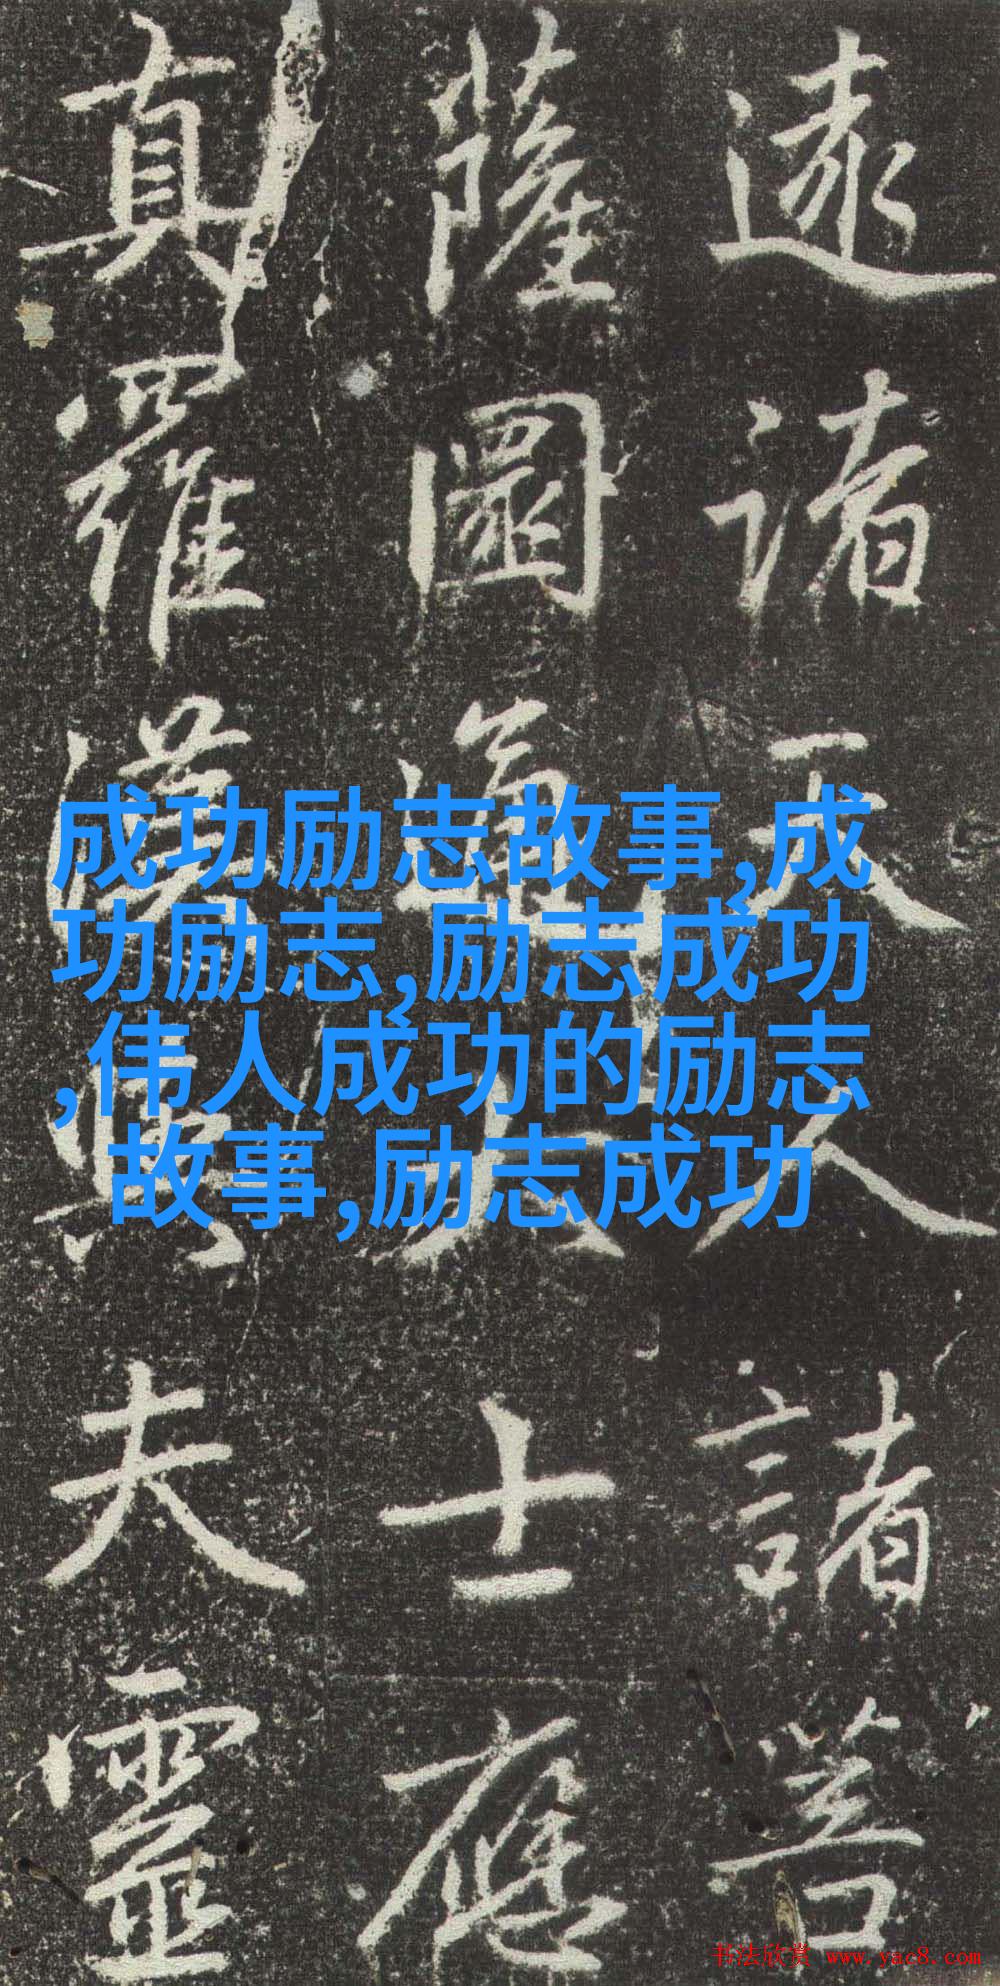 逮諸天人諸菩
薩圓通大士應
真羅漢與夫靈
成功励志故事,成
功励志,励志成功
,伟人成功的励志
故事,励志成功
书法欣赏 www.yac8.com